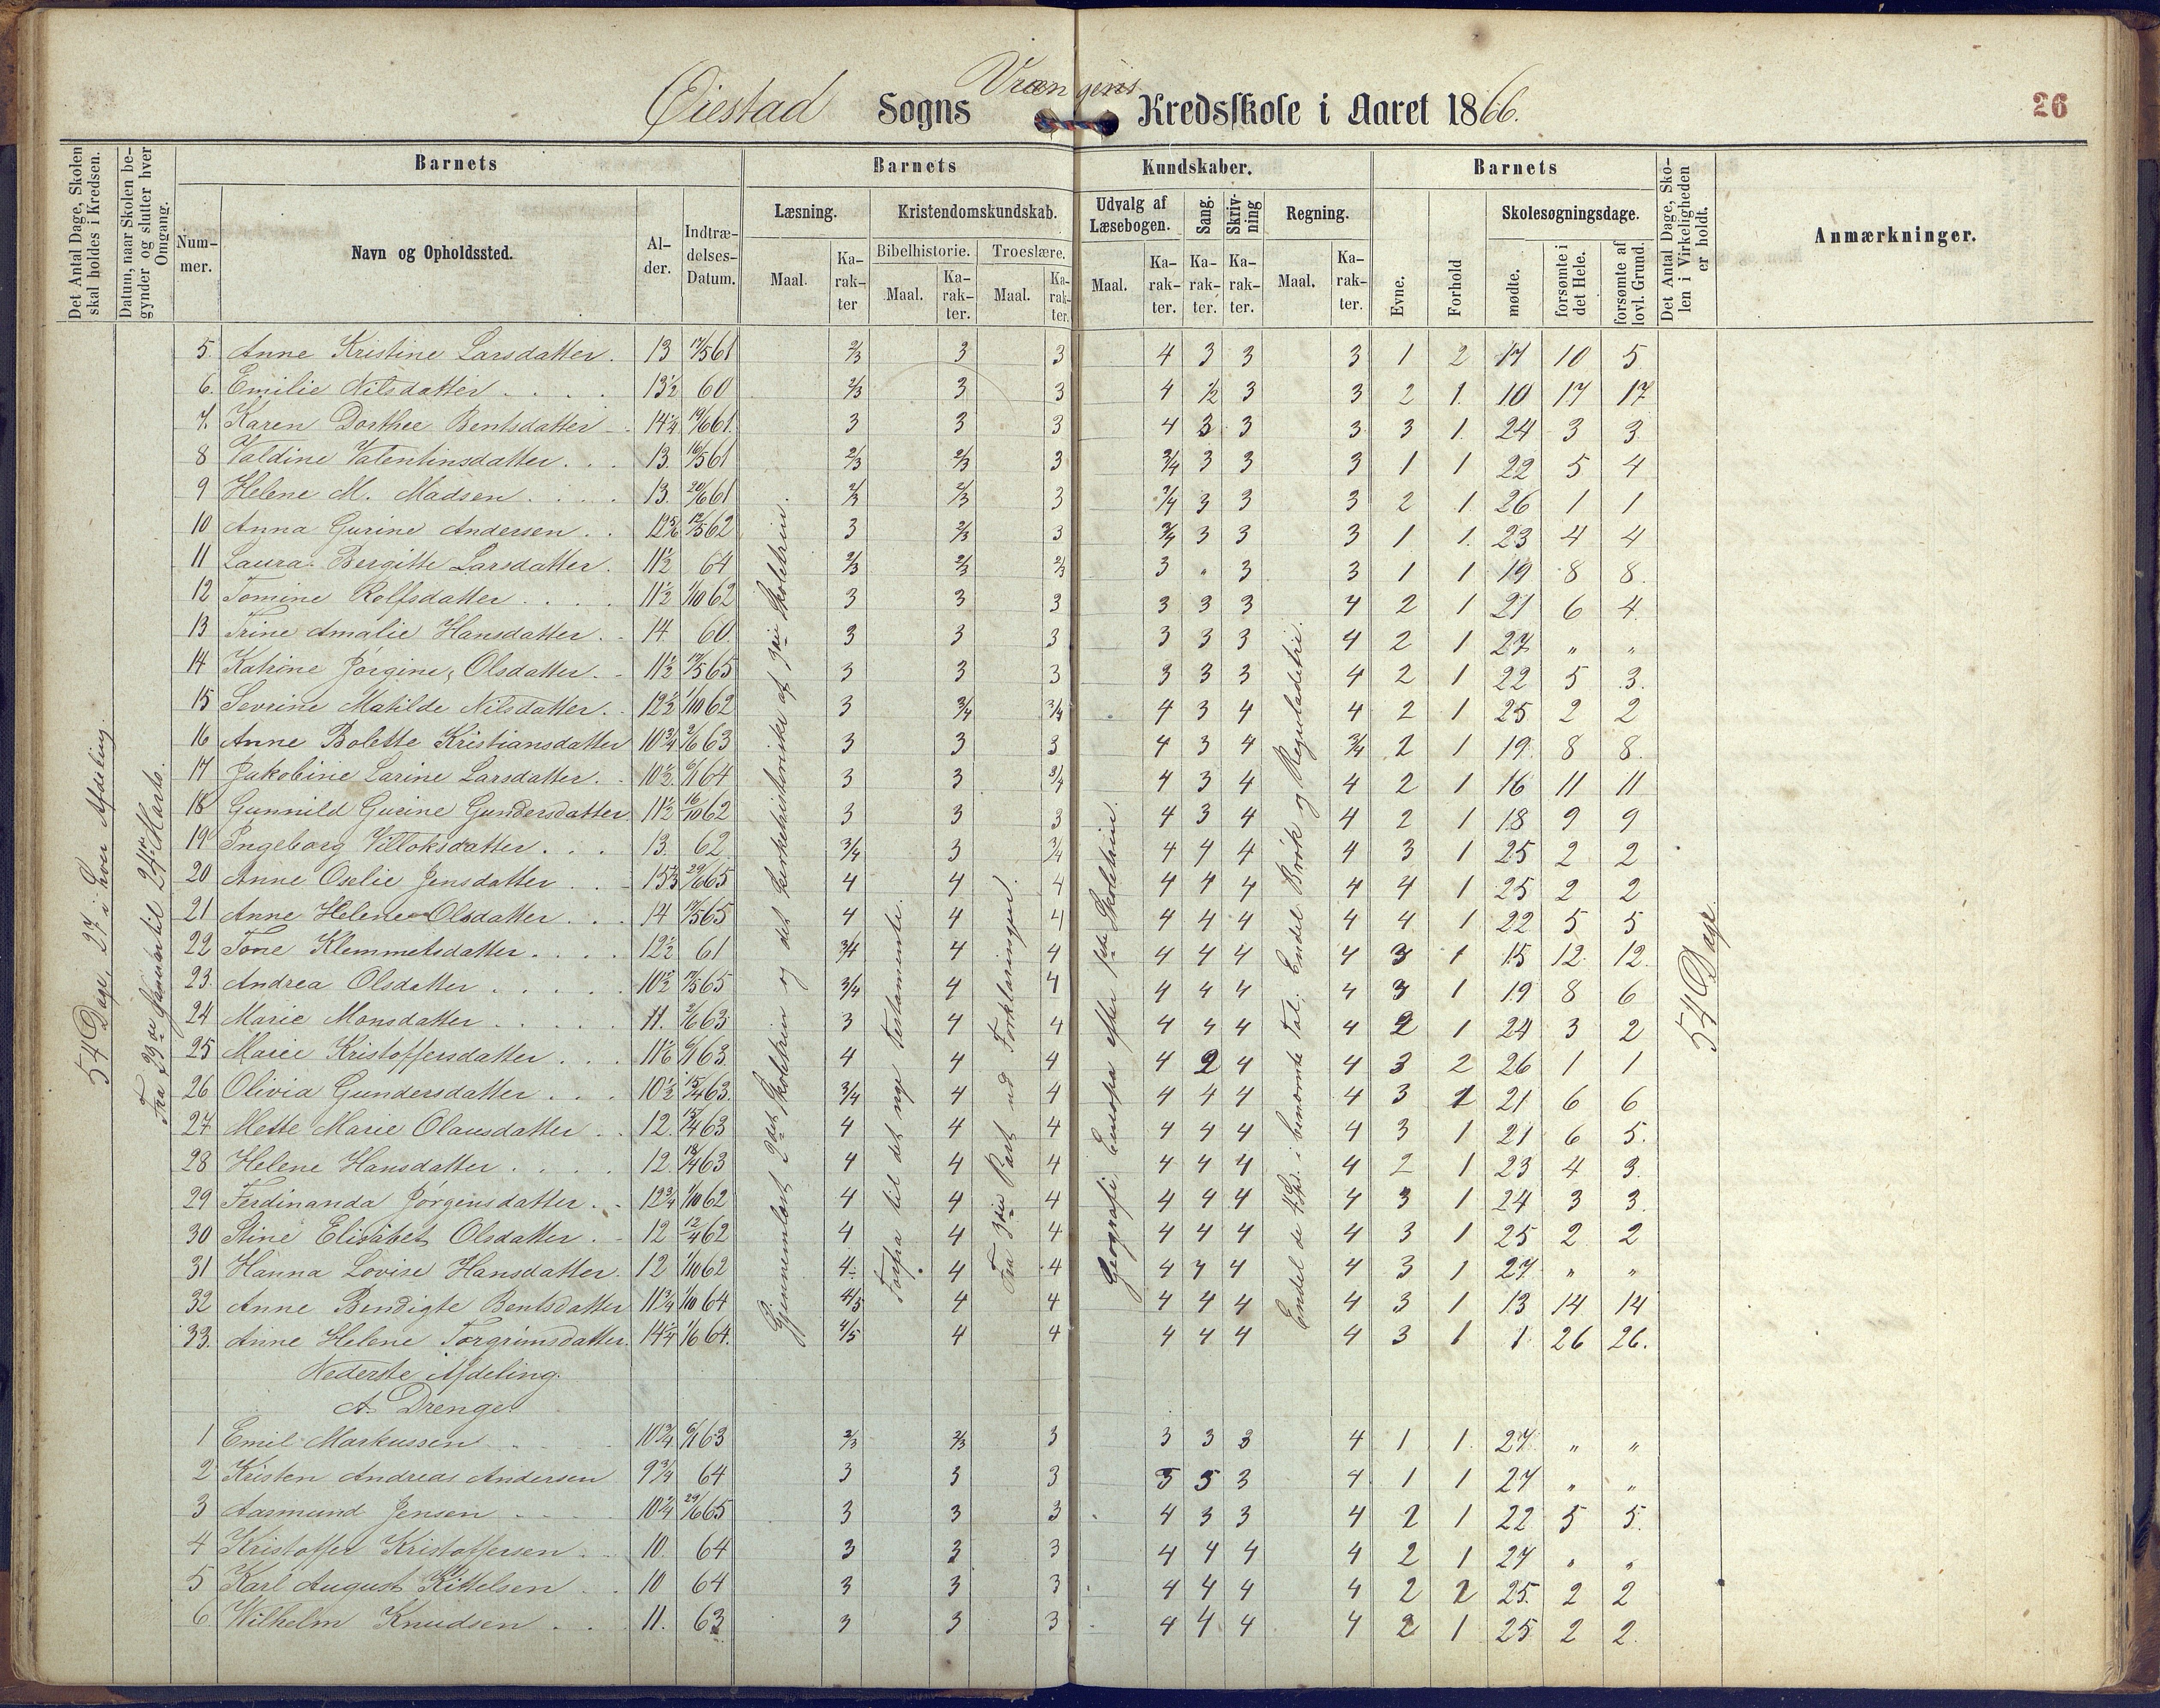 Øiestad Sogns Vrængens Kredsskole i Aaret 1866.
26
Det Antal Dage, Skolen skal holdes i Kredsen.
Datum, naar Skolen begynder og slutter hver Omgang.
Barnets
Nummer.
Navn og Opholdssted.
Alder.
Indtrædelses-Datum.
Barnets Kundskaber.
Læsning.
Maal.
Karakter
Kristendomskundskab.
Bibelhistorie.
Maal.
Karakter.
Troeslære.
Maal.
Karakter.
Udvalg af Læsebogen.
Maal.
Karakter.
Sang.
Karakter.
Skrivning
Karakter.
Regning.
Maal.
Karakter.
Barnets
Evne.
Forhold
Skolesøgningsdage.
mødte.
forsømte i det Hele.
forsømte af lovl. Grund.
Det Antal Dage, Skolen i Virkeligheden er holdt.
Anmærkninger.
54 Dage, 27 i hver Afdeling.
Fra 23de Januar til 24de Marts.
Gjennemløst 2det Skoletrin og det kirkehistoriske af 3die Skoletrin.
Forfra til det nye Testamente.
Fra 3die Part ud Forklaringen.
Geografi: Europa efter 1ste Skoletrin.
Endel de 4 Sp. i benævnte Tal; Endel Brøk og Reguladetri.
54 Dage.
5. Anne Kristine Larsdatter. 13 17/5 61 2/3 3 3 4 3 3 3 1 2 17 10 5
6. Emilie Nilsdatter 13½ 60 2/3 3 3 4 ½ 3 3 2 1. 10 17 17
7. Karen Dorthee Bentsdatter 14¼ 19/6 61. 3 3 3 4 3 3 3 3 1. 24 3 3
8 Valdine Valentinsdatter. 13. 16/5 61 2/3 2/3 3 3/4 3 3 3 1 1 22 5 4
9 Helene M. Madsen 13. 20/6 61 2/3 2/3 3 3/4 3 3 3 2 1. 26 1 1
10 Anna Gurine Andersen 12 5/6 12/5 62 3 2/3 3 3/4 3 3 3 1 1. 23 4 4
11 Laura Bergitte Larsdatter. 11½ 64 2/3 2/3 2/3 3 " 3 3 1 1 19 8 8.
12 Tomine Rolfsdatter 11½ 1/10 62 3 3 3 3 3 3 4 2 1 21 6 4.
13 Trine Amalie Hansdatter. 14. 60. 3 3 3 3 3 3 4 2 1 27 " "
14 Katrine Jørgine Olsdatter. 11½ 17/5 65 3 3 3 3 3 3 4 2 1 22 5 3.
15 Sevrine Matilde Nilsdatter. 12½ 1/10 62 3 3/4 3/4 4 3 4 4 2 1 25 2 2
16 Anne Bolette Kristiansdatter 10¾ 2/6 63 3 3 3 4 3 4 3/4 2 1 19. 8 8.
17 Jakobine Larine Larsdatter. 10½. 6/1 64 3 3 3/4 4 3 4 4 2 1 16 11 11
18 Gunnild Gurine Gundersdatter. 11½ 16/10 62 3 3 3 4 3 4 4 2 1 18 9 9
19 Ingeborg Villoksdatter. 13. 62. 3/4 3 3/4 4 4 4 4 3 1 25 2 2
20 Anne Oselie Jensdatter 15⅓ 29/6 65 4 4 4 4 4 4 4 4 1 25 2 2
21 Anne Helene Olsdatter. 14 17/5 65 4 4 4 4 4 4 4 4 1 22 5 5
22 Tone Klemmetsdatter. 12½ 61 3/4 4 4 4 4 4 4 3 1 15 12. 12.
23. Andrea Olsdatter 10½ 17/5 65 3/4 4 4 4 4 4 4 3 1 19 8 6
24 Marie Monsdatter 11. 2/6 63 3 4 4 4 4 4 4 2 1 24 3 2
25 Marie Kristoffersdatter 11⅙ 6/1 63. 4 4 4 4 2 4 4 3 2 26 1 1
26 Olivia Gundersdatter 10½ 15/4 63. 3/4 4 4 4 4 4 4 3 1 21 6 6
27 Mette Marie Olausdatter 12. 15/4 63 4 4 4 4 4 4 4 3 1 21 6 5.
28 Helene Hansdatter 12. 18/4 63 4 4 4 4 4 4 4 2 1 23 4 3.
29 Ferdinanda Jørgensdatter. 12¾ 1/10 62 4 4 4 4 4 4 4 3 1 24 3 3.
30 Stine Elisabet Olsdatter. 12 12/4 62 4 4 4 4 4 4 4 3 1 25 2 2
31 Hanna Lovise Hansdatter. 12 1/10 62 4 4 4 4 4 4 4 3 1 27 " "
32 Anne Bendigte Bentsdatter 11¾ 1/10 64 4/5 4 4 4 4 4 4 3 1 13 14 14
33. Anne Helene Torgrimsdatter. 14¼ 1/6 64. 4/5 4 4 4 4 4 4 3 1 1 26 26.
Nederste Afdeling.
A. Drenge.
1 Emil Markussen 10¾ 6/1 63 2/3 2/3 3 3 3 3 4 1 1. 27 " "
2 Kristen Andreas Andersen 9¾ 64 3 3 3 3 3 3 4 1 1 27 " "
3 Aasmund Jensen 10¼ 29/6 65 3 3 3 4 3 3 4 2 1 22 5 5.
4 Kristoffer Kristoffersen. 10. 64 3 3 3 4 4 4 4 2 1 27 " "
5 Karl August Kittelsen 10 64 3 3 3 4 4 4 4 2 2 25. 2 2
6 Wilhelm Knudsen 11. 63 3 3 3 4 4 4 4 2 1 25 2 2.